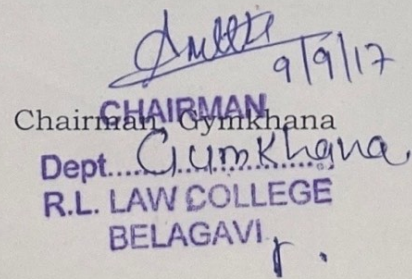 9/9/17
Chairman, Gymkhana
CHAIRMAN
Dept....Gumkhana.
R.L. LAW COLLEGE
BELAGAVI